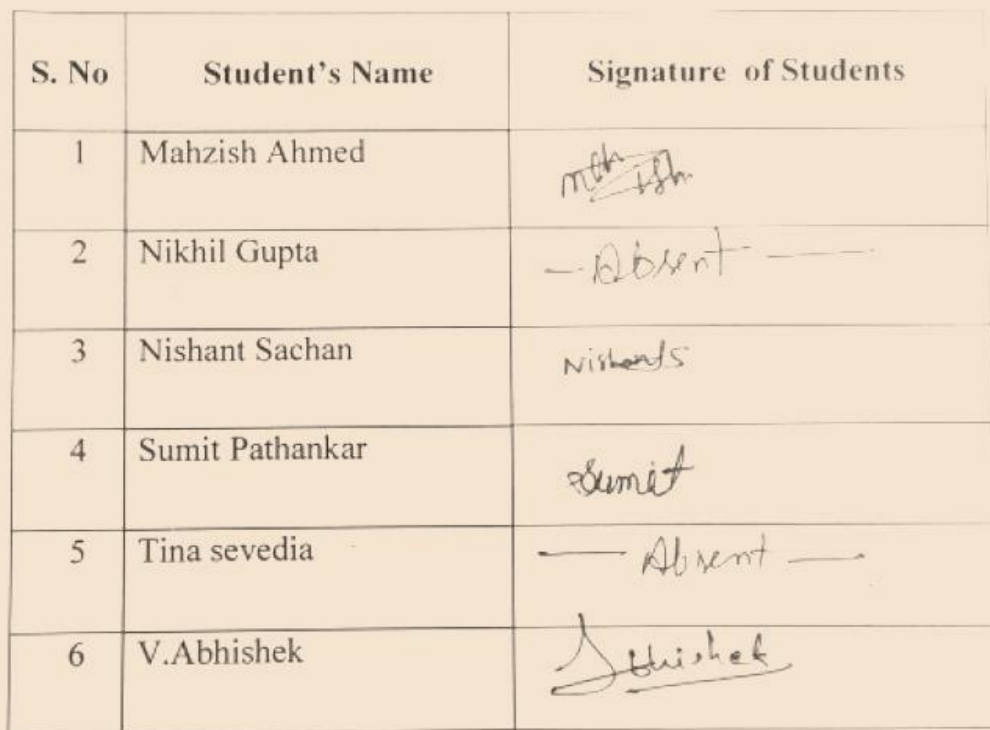 S. No Student's Name Signature of Students
1 Mahzish Ahmed
2 Nikhil Gupta - Absent -
3 Nishant Sachan NishantS
4 Sumit Pathankar Sumit
5 Tina sevedia - Absent -
6 V.Abhishek Abhishek